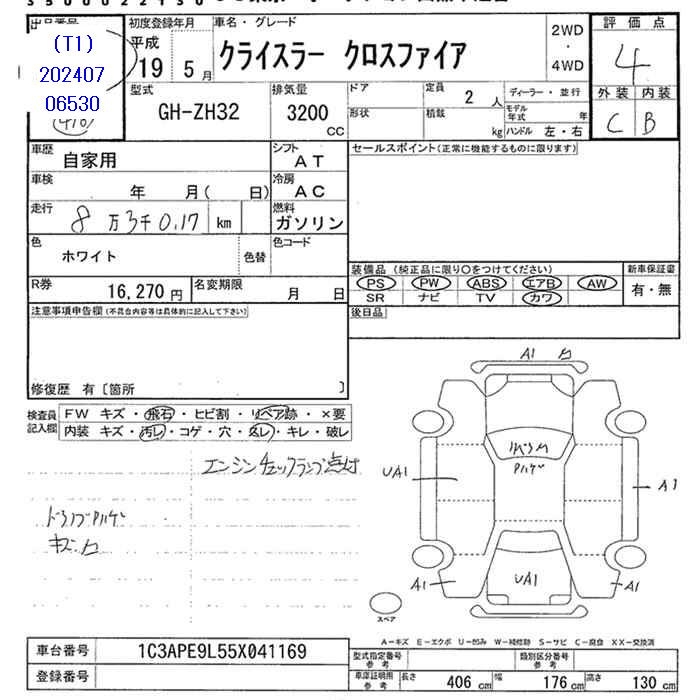 (T1)
202407
06530
初度登録年月
平成
19 年 5 月
車名・グレード
クライスラー クロスファイア
2WD
・
4WD
評価点
4
外装 内装
C B
型式
GH-ZH32
排気量
3200
CC
ドア
形状
定員
2 人
積載
kg
ディーラー・並行
モデル年式 年
ハンドル 左・右
車歴
自家用
シフト
AT
車検
年 月( 日)
冷房
AC
走行
8万3千0.17 km
燃料
ガソリン
色
ホワイト
色替
色コード
R券
16,270 円
名変期限
月 日
セールスポイント(正常に機能するものに限ります)
装備品 (純正品に限り○をつけてください)
PS PW ABS エアB AW
SR ナビ TV カワ
新車保証書
有・無
後日品
注意事項申告欄(不具合内容等は具体的に記入して下さい)
修復歴 有 〔箇所 〕
検査員
記入欄
FW キズ・飛石・ヒビ割・リペア跡・×要
内装 キズ・汚レ・コゲ・穴・スレ・キレ・破レ
エンジンチェックランプ点灯
A1
UA1
A1
UA1
A1
A1
スペア
A-キズ E-エクボ U-凹み W-補修跡 S-サビ C-腐食 XX-交換済
車台番号
1C3APE9L55X041169
登録番号
型式指定番号
参考
類別区分番号
参考
車庫証明用
参考
長さ 406 cm 幅 176 cm 高さ 130 cm